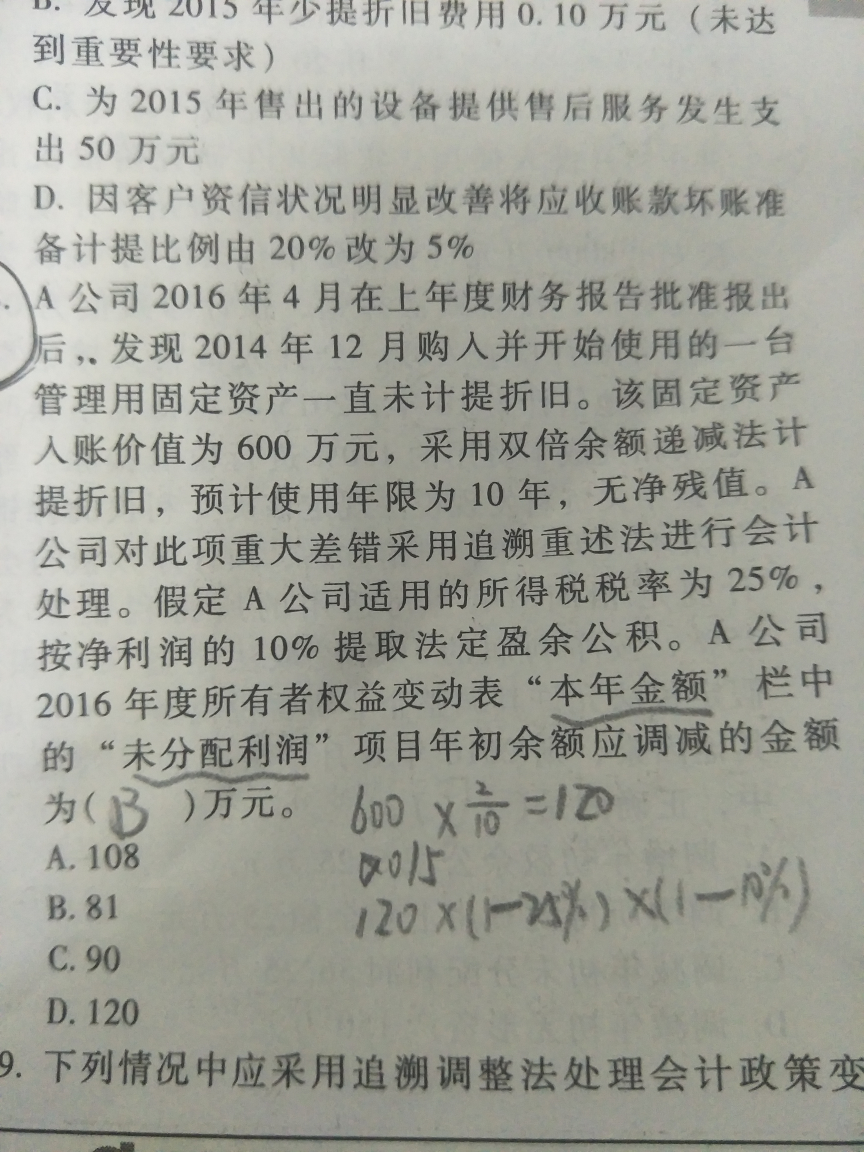 B. 发现 2015 年少提折旧费用 0.10 万元（未达
到重要性要求）
C. 为 2015 年售出的设备提供售后服务发生支
出 50 万元
D. 因客户资信状况明显改善将应收账款坏账准
备计提比例由 20% 改为 5%
A 公司 2016 年 4 月在上年度财务报告批准报出
后，发现 2014 年 12 月购入并开始使用的一台
管理用固定资产一直未计提折旧。该固定资产
入账价值为 600 万元，采用双倍余额递减法计
提折旧，预计使用年限为 10 年，无净残值。A
公司对此项重大差错采用追溯重述法进行会计
处理。假定 A 公司适用的所得税税率为 25%，
按净利润的 10% 提取法定盈余公积。A 公司
2016 年度所有者权益变动表“本年金额”栏中
的“未分配利润”项目年初余额应调减的金额
为( B )万元。 600 × 2/10 = 120
A. 108 2015
B. 81 120 ×(1-25%)×(1-10%)
C. 90
D. 120
9. 下列情况中应采用追溯调整法处理会计政策变